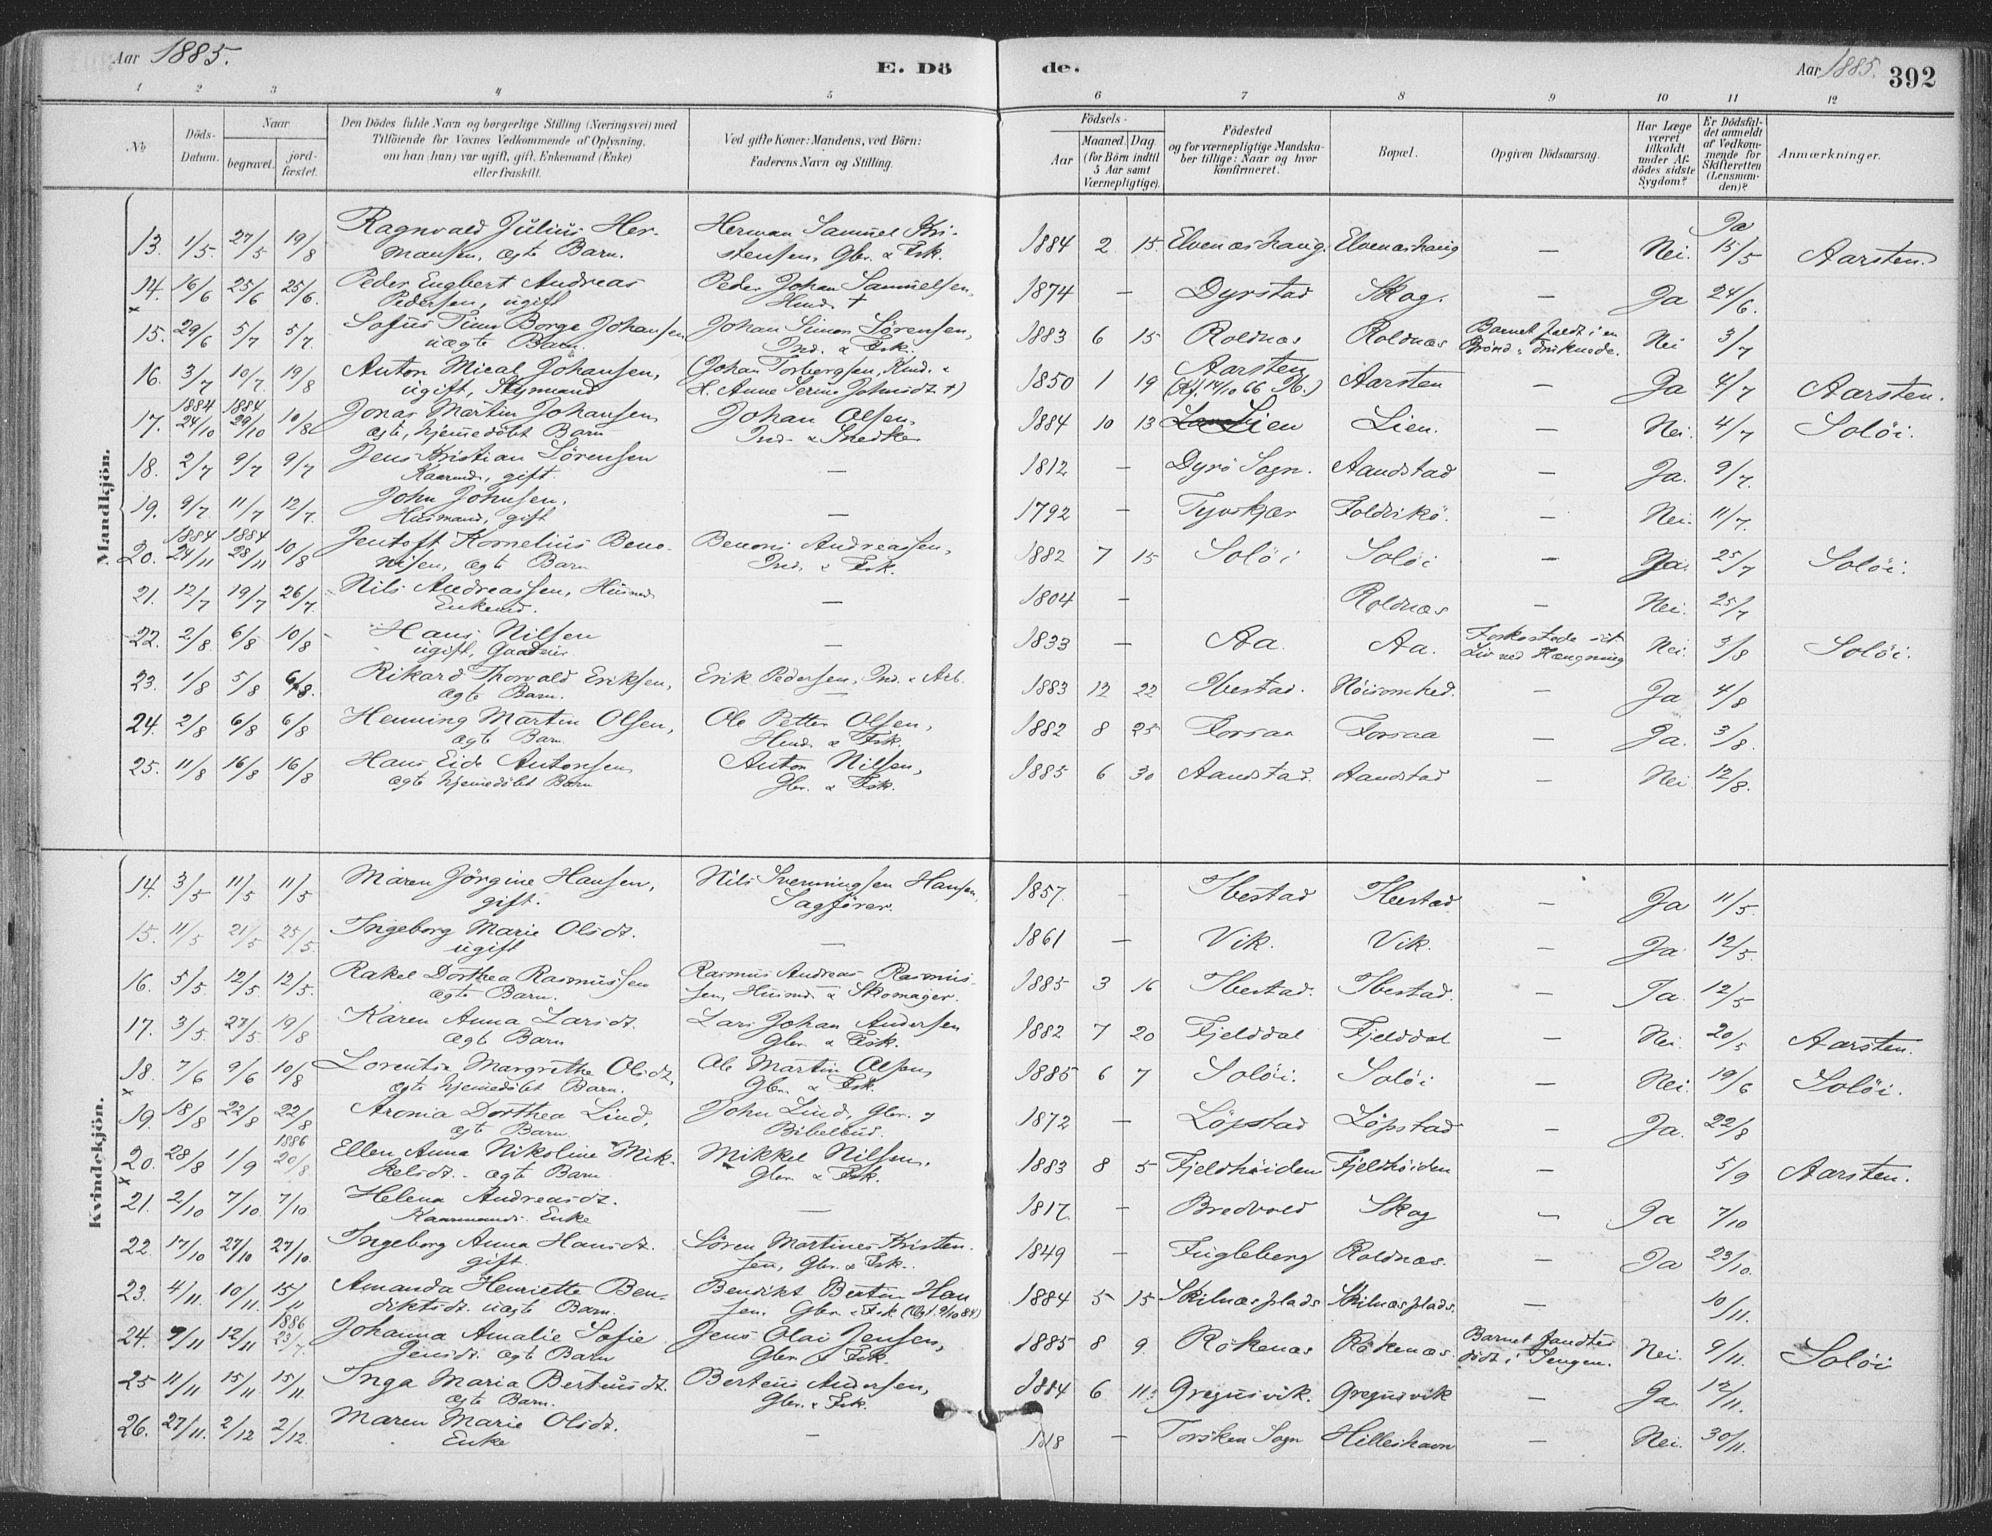 Aar 1885.
E. Dö
de.
Aar 1885.
392
1 2 3 4 5 6 7 8 9 10 11 12
No
Döds-
Datum.
Naar
begravet.
jord-
fæstet.
Den Dödes fulde Navn og borgerlige Stilling (Næringsvei) med
Tilföiende for Voxnes Vedkommende af Oplysning,
om han (hun) var ugift, gift, Enkemand (Enke)
eller fraskilt.
Ved gifte Koner: Mandens, ved Börn:
Faderens Navn og Stilling.
Födsels-
Aar
Maaned. Dag
(for Börn indtil
5 Aar samt
Værnepligtige).
Födested
og for værnepligtige Mandska-
ber tillige: Naar og hvor
konfirmeret.
Bopæl.
Opgiven Dödsaarsag.
Har Læge
været
tilkaldt
under Af-
dödes sidste
Sygdom?
Er Dödsfal-
det anmeldt
af Vedkom-
mende for
Skifteretten
(Lensman-
den)?
Anmærkninger.
Mandkjön.
Ja
13. 1/5 27/5 19/8 Ragnvald Julius Her- Herman Samuel Kri- 1884 2 15 Elvenæshaug. Elvenæshaug — Nei. 15/5 Aarsten.
mansen, ægte Barn. stensen, Gbr. & Fsk.
14. 16/6 25/6 25/6. Peder Engbert Andreas Peder Johan Samuelsen, 1874 — Dyrstad Skog. — Ja 24/6.
x Pedersen, ugift Husmd. †
15. 29/6 5/7 5/7. Sofus Timn Borge Johansen Johan Simon Sörensen, 1883 6 15 Roldnæs Roldnæs Barnet faldt i en Nei 3/7
uægte Barn. Ind. & Fsk. Brönd & druknede.
16. 3/7 10/7. 19/8 Anton Mical Johansen, (Johan Torbergsen, Husmd. & 1850 1 19 Aarsten Aarsten — Ja 4/7 Aarsten.
ugift, Styrmand Anne Serine Johnsdt †) (Kf. 14/10 66 )
1884 1884
17. 24/10 29/10 10/8 Jonas Martin Johansen, Johan Olsen, 1884 10 13 Lien Lien. — Nei. 4/7 Solöi.
ægte, hjemmedöbt Barn Ind. & Snedker
18. 2/7 9/7 9/7 Jens Kristian Sörensen — 1812 — Dyrö Sogn. Aandstad — Ja. 9/7.
Kaarmd., gift.
19. 9/7 11/7 12/7. John Johnsen, — 1792 — Tyvskjær Foldvikö. — Nei. 11/7.
Husmand, gift
1884 1884
20. 24/11 28/11 10/8 Jentoft Kornelius Beno- Benoni Andreassen, 1882 7 15 Solöi Solöi — Ja. 25/7 Solöi.
nisen, ægte Barn Ind. & Fsk.
21. 12/7 19/7 26/7. Nils Andreassen, Husmd. — 1804 — Roldnæs — Nei. 25/7
Enkemd.
22. 2/8 6/8 10/8 Hans Nilsen — 1833 — Aa. Aa. Forkortede sit Nei. 3/8 Solöi.
ugift, Gaardbr. Liv ved Hængning
23. 1/8 5/8 6/8. Rikard Thorvald Eriksen, Erik Pedersen, Ind. & Arb. 1883 12 22 Ibestad. Nöisomhed. — Ja 4/8
ægte Barn. —
24. 2/8 6/8 6/8 Henning Martin Olsen, Ole Petter Olsen, 1882 8 25 Forsaa Forsaa — Ja. 3/8.
ægte Barn. Husmd. & Fsk.
25. 11/8 16/8 16/8 Hans Eide Antonsen Anton Nilsen, 1885 6 30 Aandstad. Aandstad — Nei 12/8.
ægte hjemmedöbt Barn Gbr. & Fsk.
Kvindekjön.
14. 3/5 11/5 11/5 Maren Jörgine Hansen, Nils Svenningsen Hansen, 1857. — Ibestad Ibestad — Ja 11/5.
gift. Sagförer.
15. 11/5 21/5 25/5. Ingeborg Marie Olsdt. — 1861 — Vik. Vik. — Ja. 12/5.
ugift
16. 5/5. 12/5. 12/5. Rakel Dorthea Rasmussen Rasmus Andreas Rasmus- 1885 3 16 Ibestad. Ibestad. — Ja. 12/5
ægte Barn. sen, Husmd & Skomager.
17. 3/5. 27/5. 19/8 Karen Anna Larsdt. Lars Johan Andersen 1882 7 20 Fjelddal Fjelddal — Nei. 20/5 Aarsten.
ægte Barn Gbr. & Fsk.
18. 7/6 9/6 10/8 Lorentse Margrethe Olsdt, Ole Martin Olsen, 1885 6 7 Solöi. Solöi — Nei. 19/6 Solöi.
x ægte hjemmedöbt Barn. Gbr. & Fsk.
19. 18/8 22/8 22/8 Aronia Dorthea Lind, John Lind, Gbr. & 1872 — Löpstad Löpstad — Ja. 22/8
ægte Barn. Bibelbud.
1886
20. 28/8 1/9 20/8 Ellen Anna Nikoline Mik- Mikkel Nilsen, 1883 8 5 Fjeldhöiden Fjeldhöiden — 5/9 Aarsten.
x kelsdt. ægte Barn Gbr. & Fsk.
21. 2/10 7/10. 7/10 Helena Andreasdt. — 1817. — Bredvold Skog — Ja 7/10
Kaarmands Enke
22. 17/10 27/10 27/10. Ingeborg Anna Hansdt. Sören Martines Kristen- 1849 — Fugleberg Roldnæs. — Ja 23/10.
gift. sen, Gbr. & Fsk.
23. 4/11. 10/11. 15/11 Amanda Henriette Ben- Benedikt Bertin Han 1884 5 15 Skilnæsplads Skilnæsplads. — 10/11.
diktsdt. uægte Barn. sen, Gbr. & Fsk (Ægt. 9/10 84)
1886
24. 9/11 12/11 23/7. Johanna Amalie Sofie Jens Olai Jensen, 1885 8 9. Rökenæs Rökenæs. Barnet fandtes Nei. 9/11. Solöi
Jensdt. ægte Barn Gbr. & Fsk. dödt i Sengen.
25 11/11 15/11 15/11. Inga Maria Berteusdt. Berteus Andersen, 1884 6 11. Gregusvik. Gregusvik — Ja 12/11.
ægte Barn. Gbr. & Fsk.
26. 27/11. 2/12 2/12. Maren Marie Olsdt. — 1818 — Torsken Sogn Hilleshavn — Nei. 30/11.
Enke